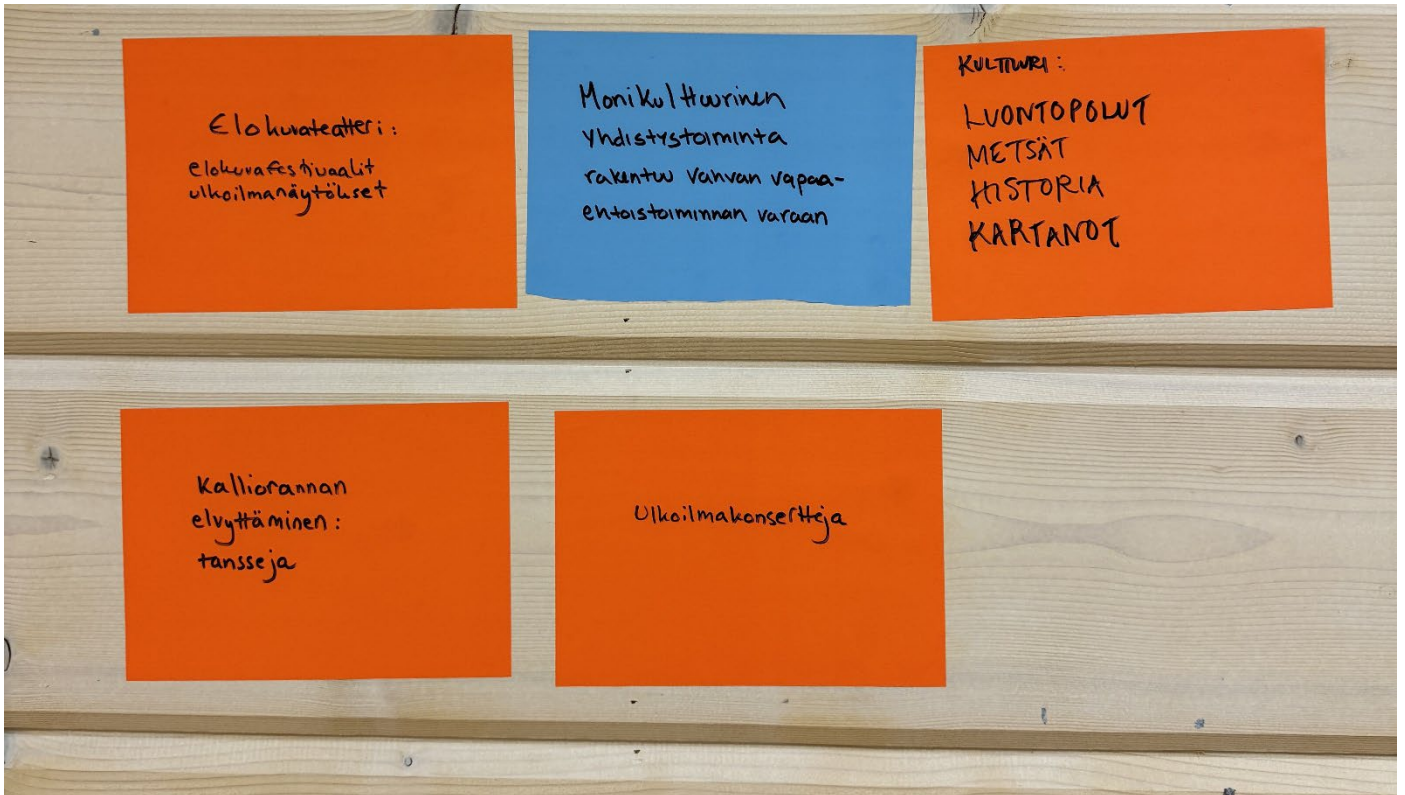 Elokuvateatteri:
elokuvafestivaalit
ulkoilmanäytökset
Monikulttuurinen
yhdistystoiminta
rakentuu vahvan vapaa-
ehtoistoiminnan varaan
KULTTUURI:
LUONTOPOLUT
METSÄT
HISTORIA
KARTANOT
Kalliorannan
elvyttäminen:
tansseja
Ulkoilmakonsertteja